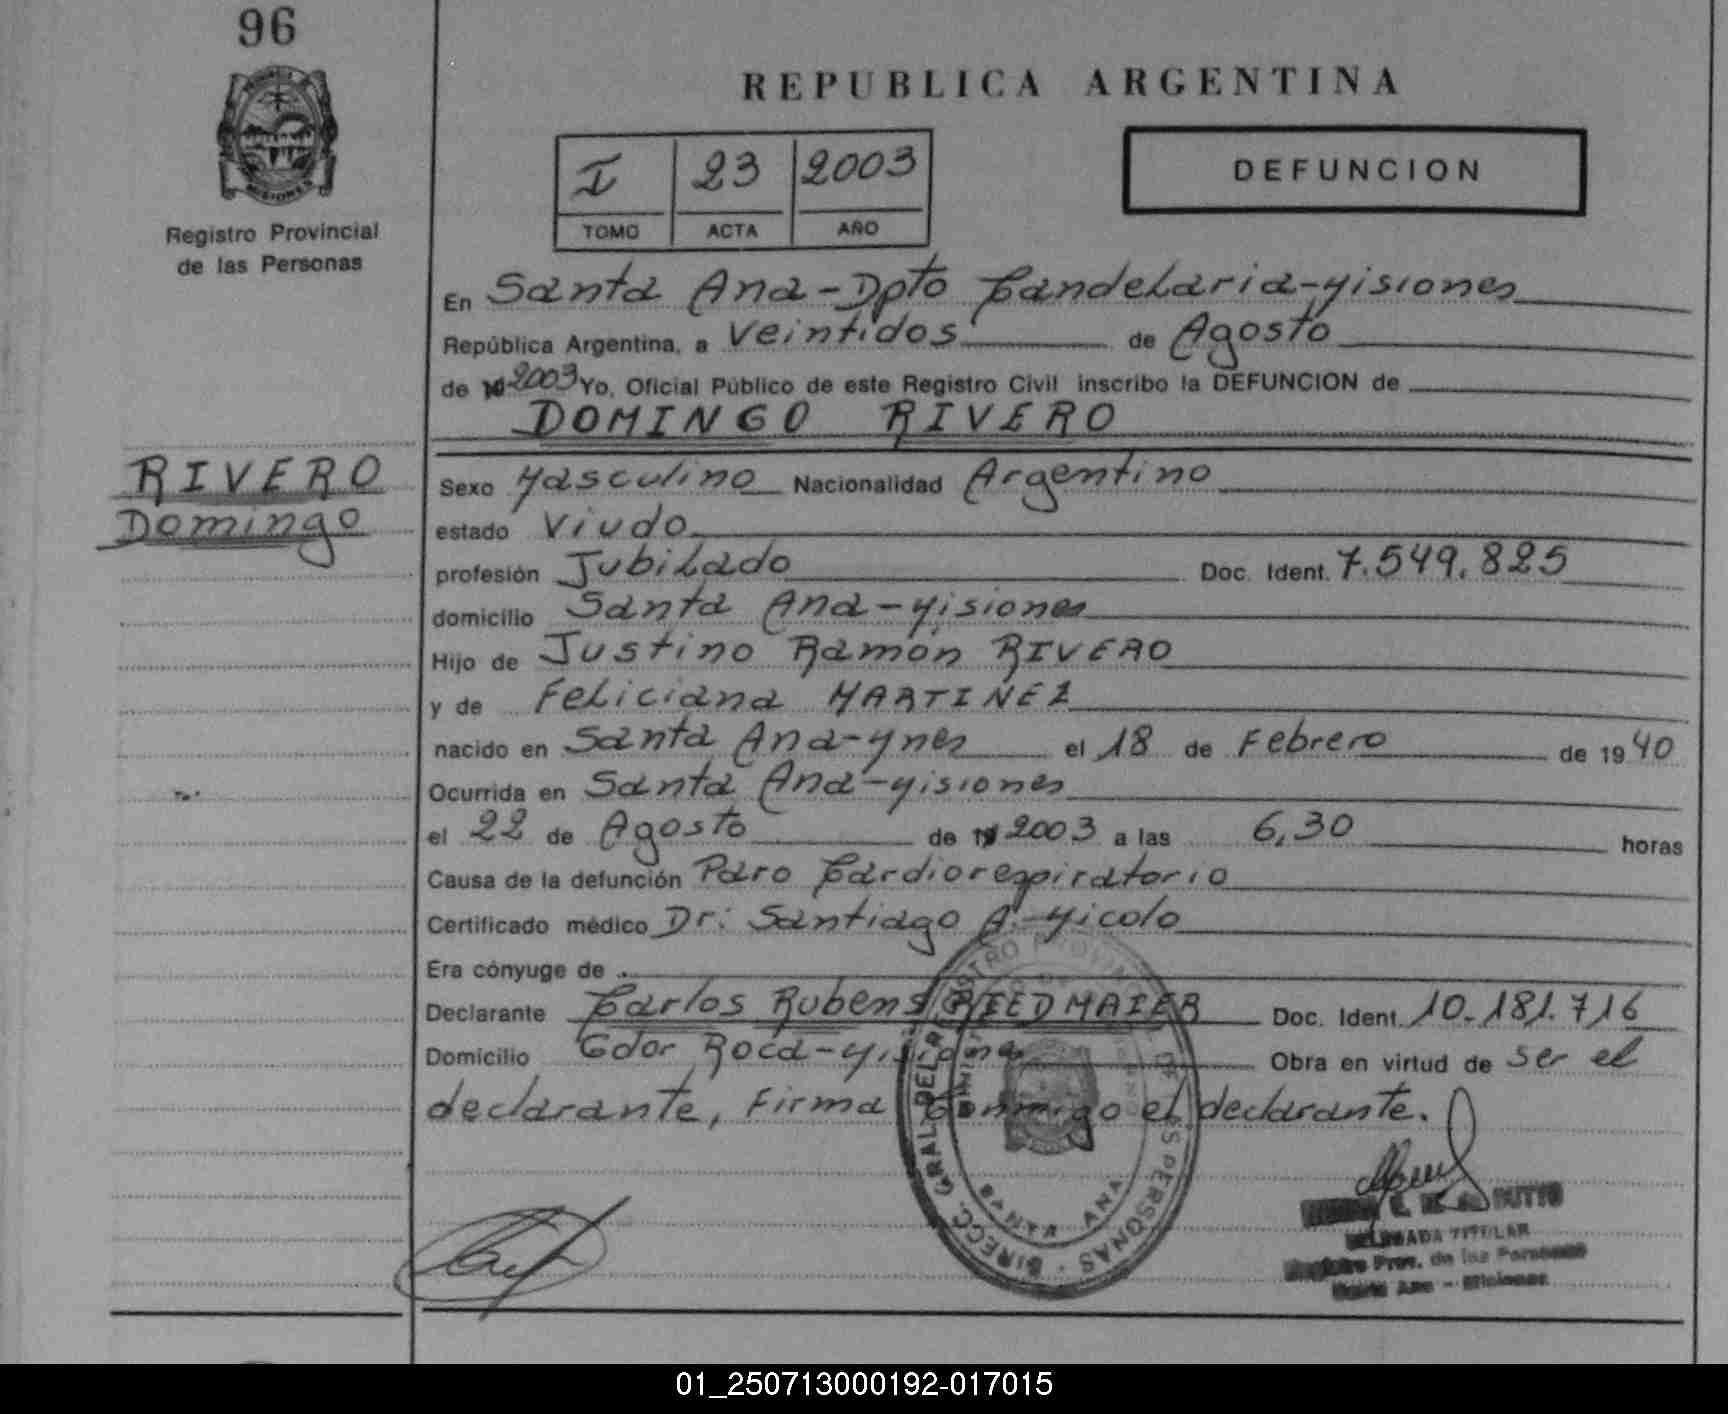 96
MISIONES
Registro Provincial
de las Personas
REPUBLICA ARGENTINA
I 23 2003
TOMO ACTA AÑO
DEFUNCION
En Santa Ana-Dpto Candelaria-Misiones
República Argentina, a Veintidos de Agosto
de 2003 Yo, Oficial Público de este Registro Civil inscribo la DEFUNCION de
DOMINGO RIVERO
RIVERO
Domingo
Sexo Masculino Nacionalidad Argentino
estado Viudo
profesión Jubilado Doc. Ident. 7.549.825
domicilio Santa Ana-Misiones
Hijo de Justino Ramón RIVERO
y de Feliciana MARTINEZ
nacido en Santa Ana-Mnes el 18 de Febrero de 1940
Ocurrida en Santa Ana-Misiones
el 22 de Agosto de 2003 a las 6,30 horas
Causa de la defunción Paro Cardiorespiratorio
Certificado médico Dr: Santiago A. Micolo
Era cónyuge de
Declarante Carlos Rubens RIEDMAIER Doc. Ident. 10.181.716
Domicilio Gdor Roca-Misiones Obra en virtud de ser el
declarante, Firma Conmigo el declarante.
DIRECC. GRAL DEL REGISTRO PROVINCIAL DE LAS PERSONAS
SANTA ANA
DELEGADA TITULAR
Registro Prov. de las Personas
Santa Ana - Misiones
01_250713000192-017015